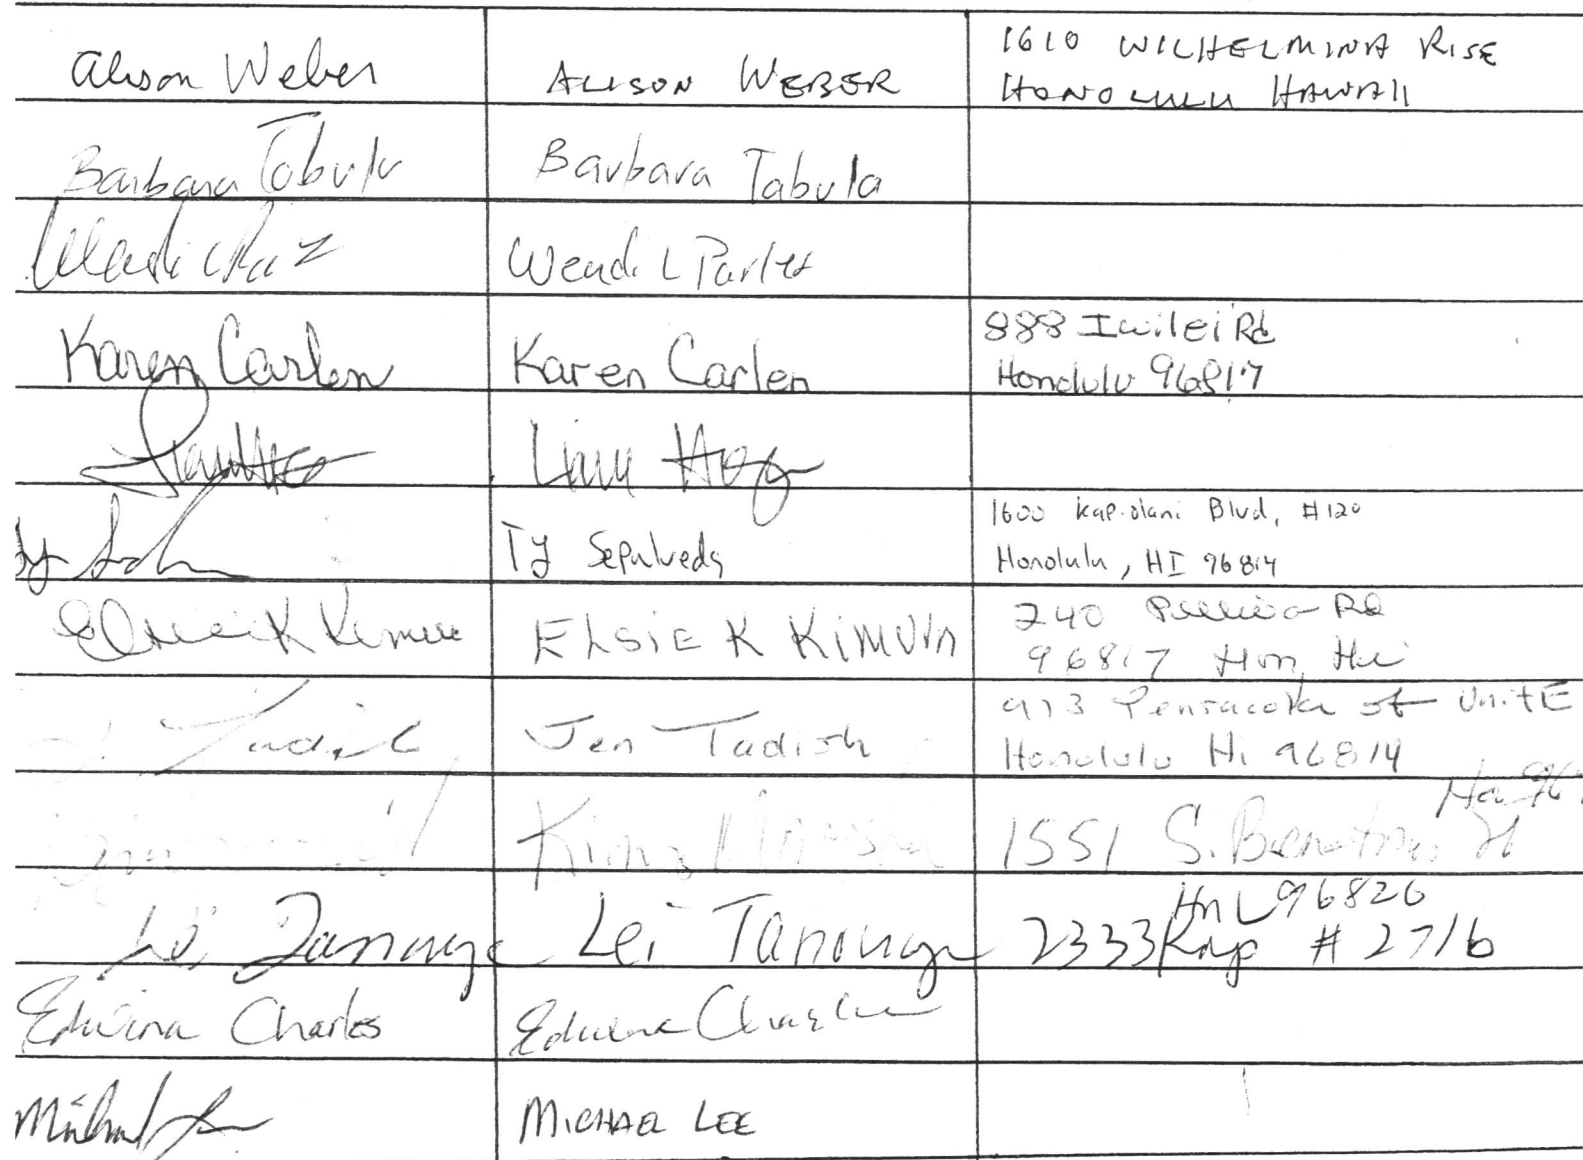 Alison Weber
ALISON WEBER
1610 WILHELMINA RISE
HONOLULU HAWAII
Barbara Tabula
Barbara Tabula
Wendi L
Karen Carlen
Karen Carlen
888 Iwilei Rd
Honolulu 96817
Ty Sepulveda
1600 Kapiolani Blvd, #120
Honolulu, HI 96814
Elsie K Kimura
ELSIE K KIMURA
240 Rd
96817 Hon, Hi
J. Tadish
Jen Tadish
913 Pensacola st Unit E
Honolulu Hi 96814
1551 S. Beretania St
Lei Tanouye
Lei Tanouye
HnL 96826
2333 Kap # 2716
Edwina Charles
Edwina Charles
Michael Lee
MICHAEL LEE